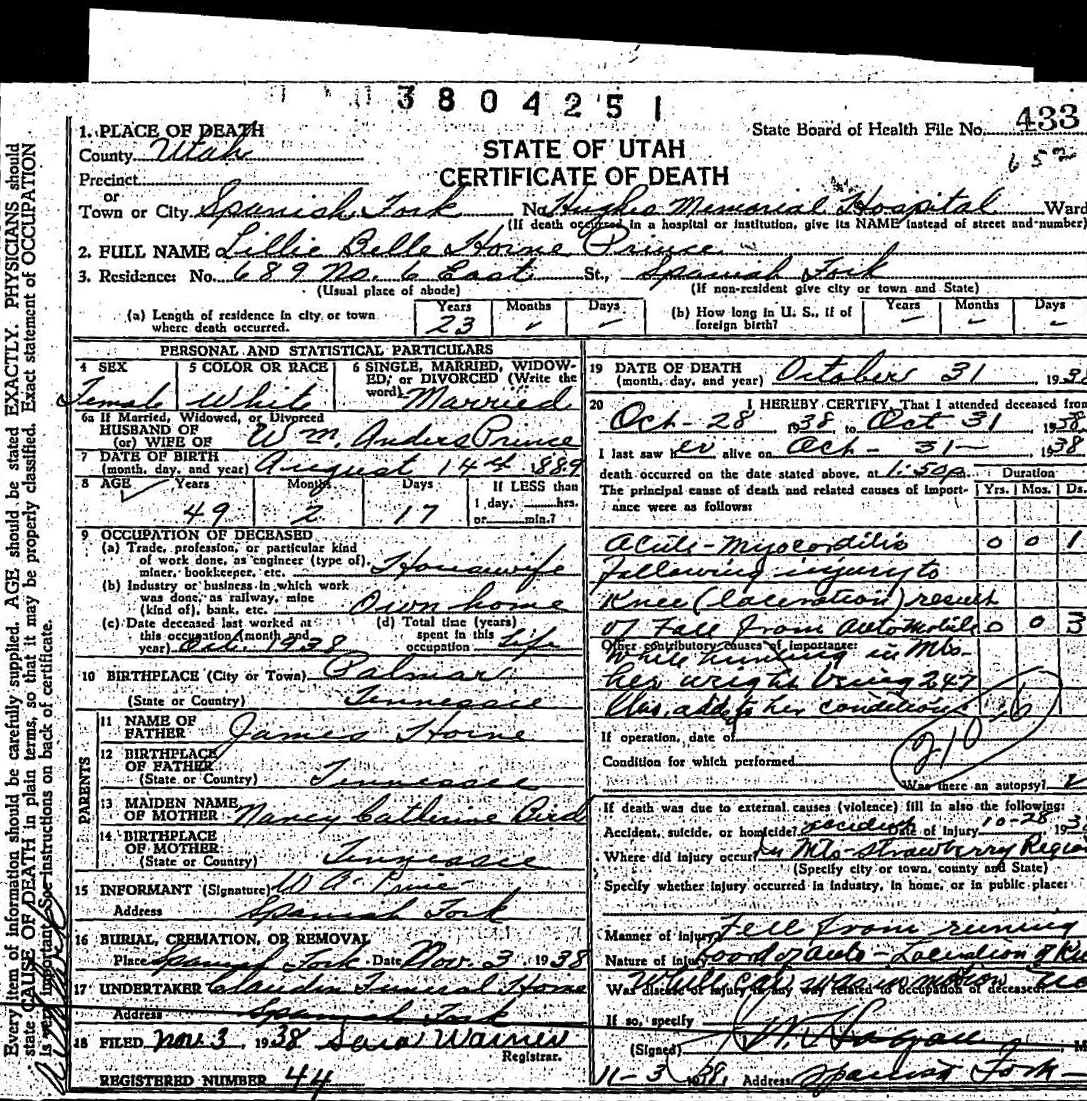 3804251
State Board of Health File No. 433
652
STATE OF UTAH
CERTIFICATE OF DEATH
1. PLACE OF DEATH
County Utah
Precinct
or
Town or City Spanish Fork No. Hughes Memorial Hospital Ward
(If death occurred in a hospital or institution, give its NAME instead of street and number)
2. FULL NAME Lillie Belle Horne Prince
3. Residence: No. 689 No. 6 East St., Spanish Fork
(Usual place of abode) (If non-resident give city or town and State)
(a) Length of residence in city or town where death occurred. Years 23 Months - Days -
(b) How long in U. S., if of foreign birth? Years - Months - Days -
PERSONAL AND STATISTICAL PARTICULARS
4 SEX Female
5 COLOR OR RACE White
6 SINGLE, MARRIED, WIDOW-
ED, or DIVORCED (Write the
word) Married
6a If Married, Widowed, or Divorced
HUSBAND OF
(or) WIFE OF Wm. Anders Prince
7 DATE OF BIRTH
(month, day, and year) August 14 1889
8 AGE Years 49 Months 2 Days 17 If LESS than
1 day, hrs.
or min.?
9 OCCUPATION OF DECEASED
(a) Trade, profession, or particular kind
of work done, as engineer (type of),
miner, bookkeeper, etc. Housewife
(b) Industry or business in which work
was done, as railway, mine
(kind of), bank, etc. Own home
(c) Date deceased last worked at
this occupation (month and
year) Oct. 1938
(d) Total time (years)
spent in this
occupation Life
10 BIRTHPLACE (City or Town) Palmar
(State or Country) Tennessee
PARENTS
11 NAME OF
FATHER James Horne
12 BIRTHPLACE
OF FATHER
(State or Country) Tennessee
13 MAIDEN NAME
OF MOTHER Nancy Catherine Bird
14 BIRTHPLACE
OF MOTHER
(State or Country) Tennessee
15 INFORMANT (Signature) W A Prince
Address Spanish Fork
16 BURIAL, CREMATION, OR REMOVAL
Place Spanish Fork Date Nov. 3 1938
17 UNDERTAKER Claudin Funeral Home
Address Spanish Fork
18 FILED Nov. 3 1938 Sara Warner
Registrar.
REGISTERED NUMBER 44
19 DATE OF DEATH
(month, day, and year) October 31 1938
20 I HEREBY CERTIFY, That I attended deceased from
Oct - 28 1938 to Oct 31 1938
I last saw er alive on Oct - 31 - 1938
death occurred on the date stated above, at 1:50p Duration
The principal cause of death and related causes of import-
ance were as follows: Yrs. Mos. Ds.
Acute - Myocarditis 0 0 1
Following injury to
Knee (laceration) result
of Fall from Automobile 0 0 3
Other contributory causes of importance:
While hunting in Mts-
her weight being 247
lbs. added to her condition
210-6
If operation, date of
Condition for which performed
Was there an autopsy?
If death was due to external causes (violence) fill in also the following:
Accident, suicide, or homicide? accident Date of injury 10-28 193
Where did injury occur? In Mts - Strawberry Region
(Specify city or town, county and State)
Specify whether injury occurred in industry, in home, or in public place:
Manner of injury Fell from running
Nature of injury board of auto - Laceration of
While car was in motion
Was disease or injury in any way related to occupation of deceased?
If so, specify
(Signed)
11-3 1938, Address Spanish Fork
Every item of information should be carefully supplied. AGE should be stated EXACTLY. PHYSICIANS should
state CAUSE OF DEATH in plain terms, so that it may be properly classified. Exact statement of OCCUPATION
is very important. See instructions on back of certificate.